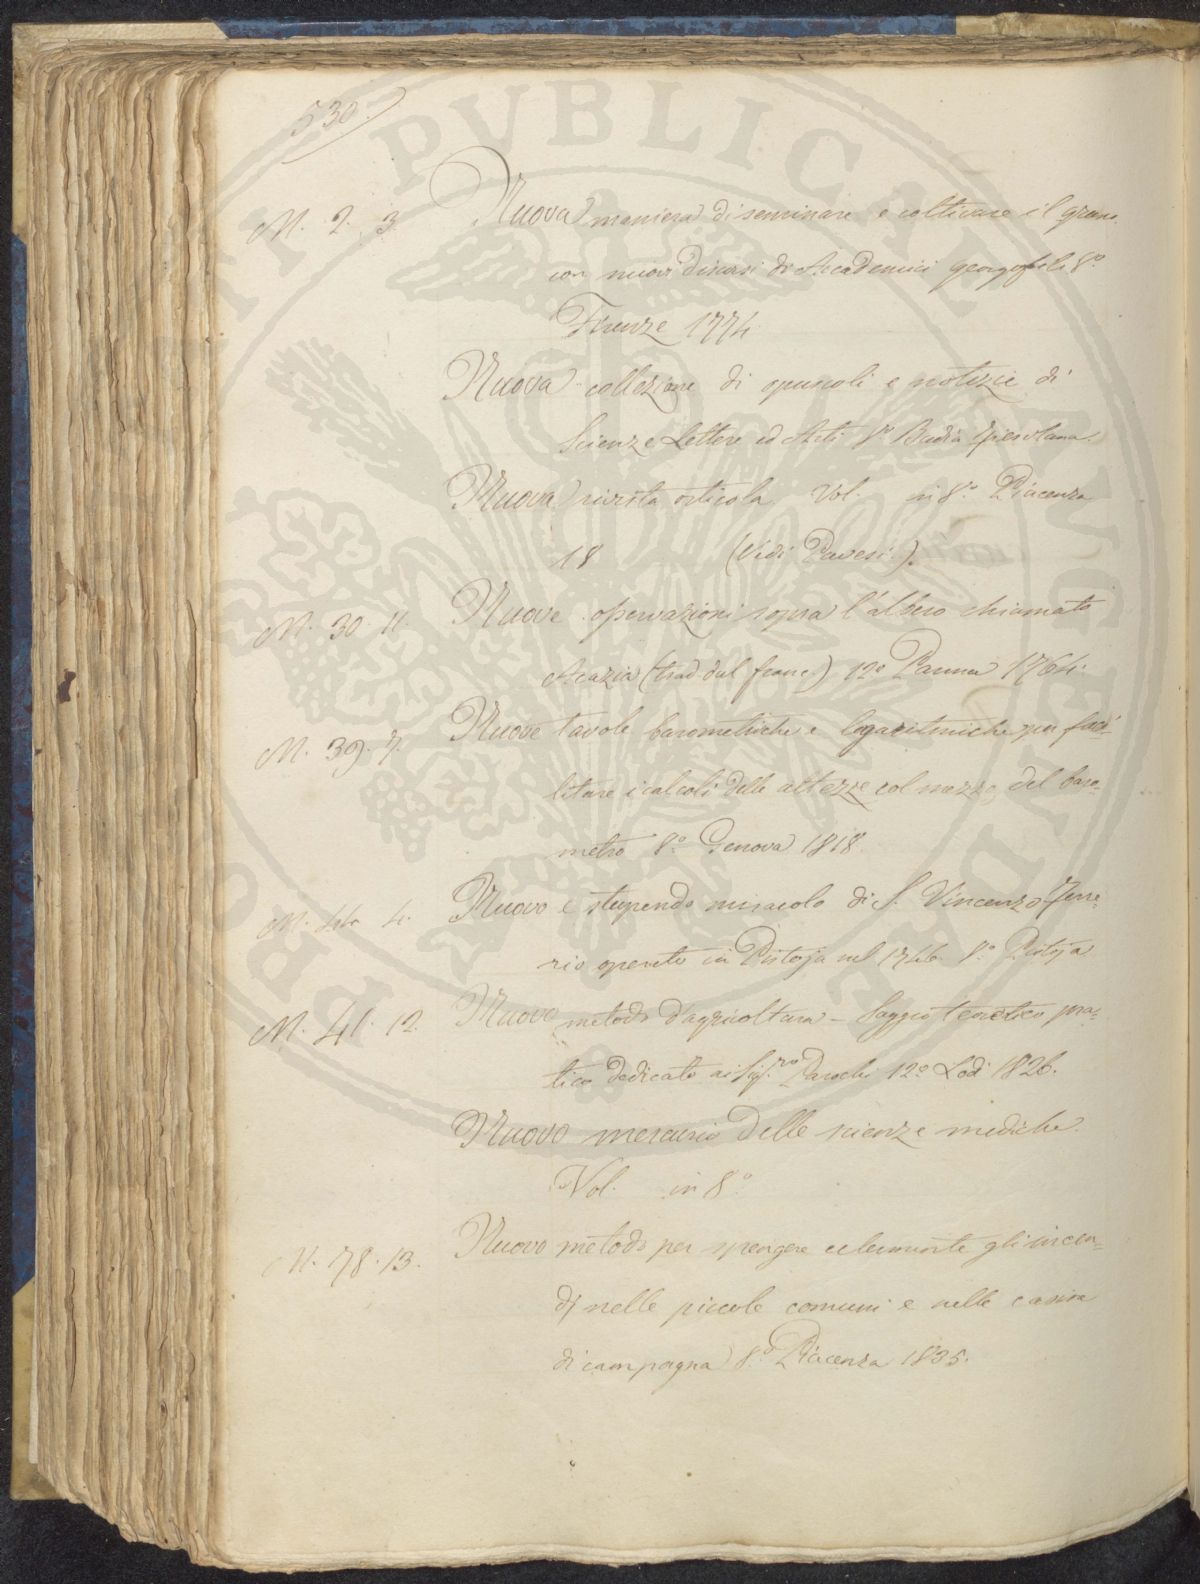 530.
M. 2. 3. Nuova maniera di seminare e coltivare il grano
con nuovi discorsi di Accademici georgofili 8º
Firenze 1774
Nuova collezione di opuscoli e notizie di
Scienze Lettere ed Arti 8º Badia Fiesolana
Nuova rivista orticola Vol. in 8º Piacenza
18 (Vedi Pavesi.).
M. 30. 11. Nuove osservazioni sopra l'albero chiamato
Acazia (trad. dal franc.) 12º Parma 1764.
M. 39. 7. Nuove tavole barometriche e logaritmiche per faci=
litare i calcoli delle altezze col mezzo del baro=
metro 8º Genova 1818.
M. 44 4. Nuovo e stupendo miracolo di S. Vincenzo Ferre=
rio operato in Pistoja nel 1746. 8º Pistoja
M. 41. 12. Nuovo metodo d'agricoltura - Saggio teoretico pra=
tico dedicato ai Sig. Parochi 12º Lodi 1826.
Nuovo mercurio delle scienze mediche.
Vol. in 8º
M. 78. 13. Nuovo metodo per spengere celermente gli incen=
dj nelle piccole comuni e nelle casine
di campagna 8º Piacenza 1835.
PVBLICAE